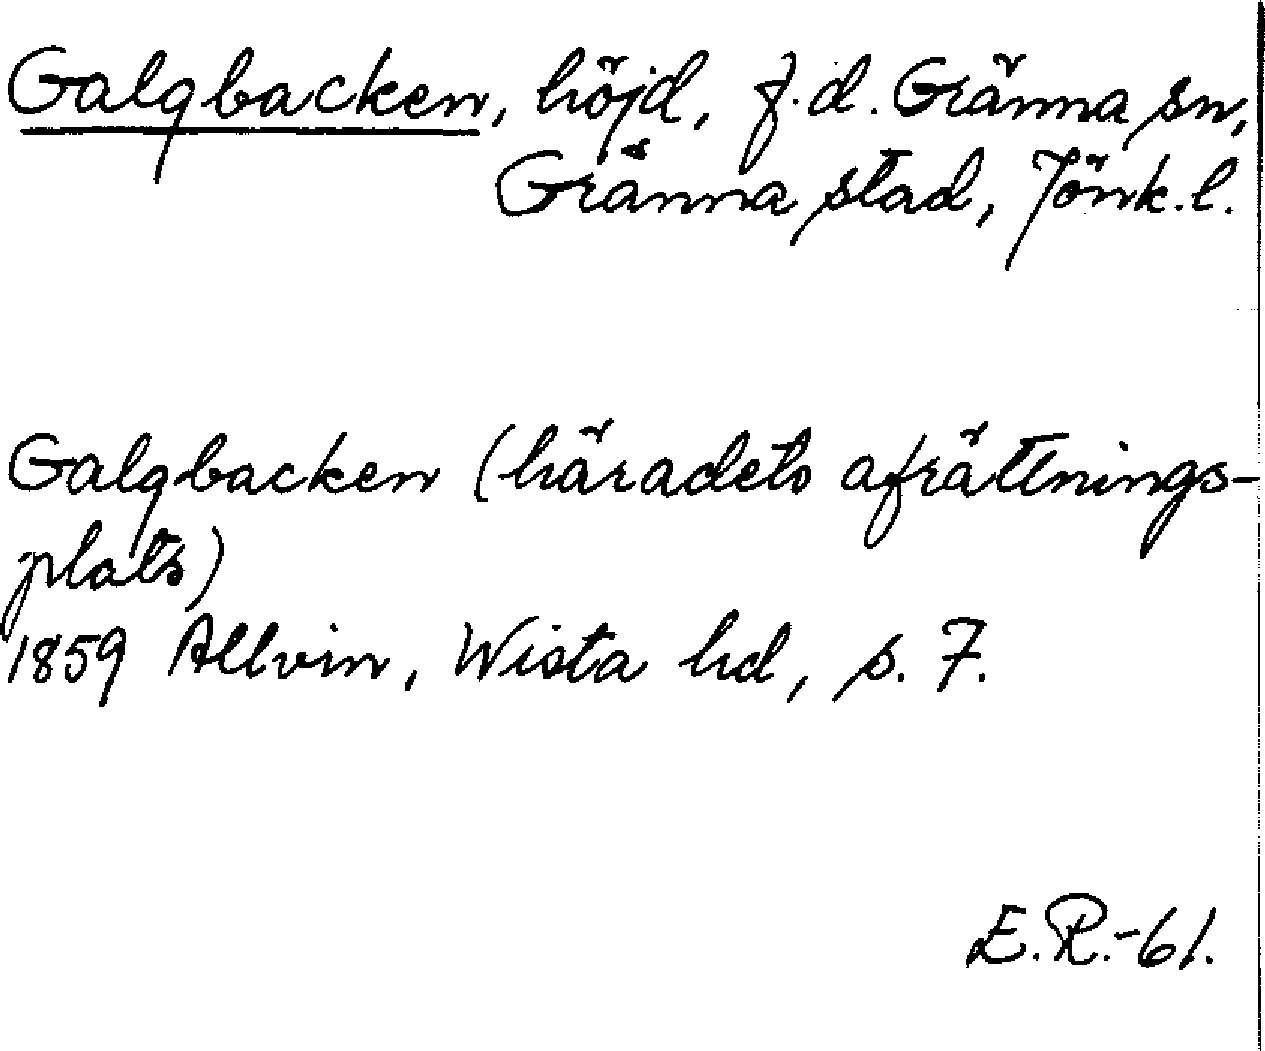 Galgbacken, höjd, f.d. Gränna sn,
Gränna stad, Jönk.l.
Galgbacken (häradets afrättnings-
plats)
1859 Allvin, Wista hd, s. 7.
E.R.-61.